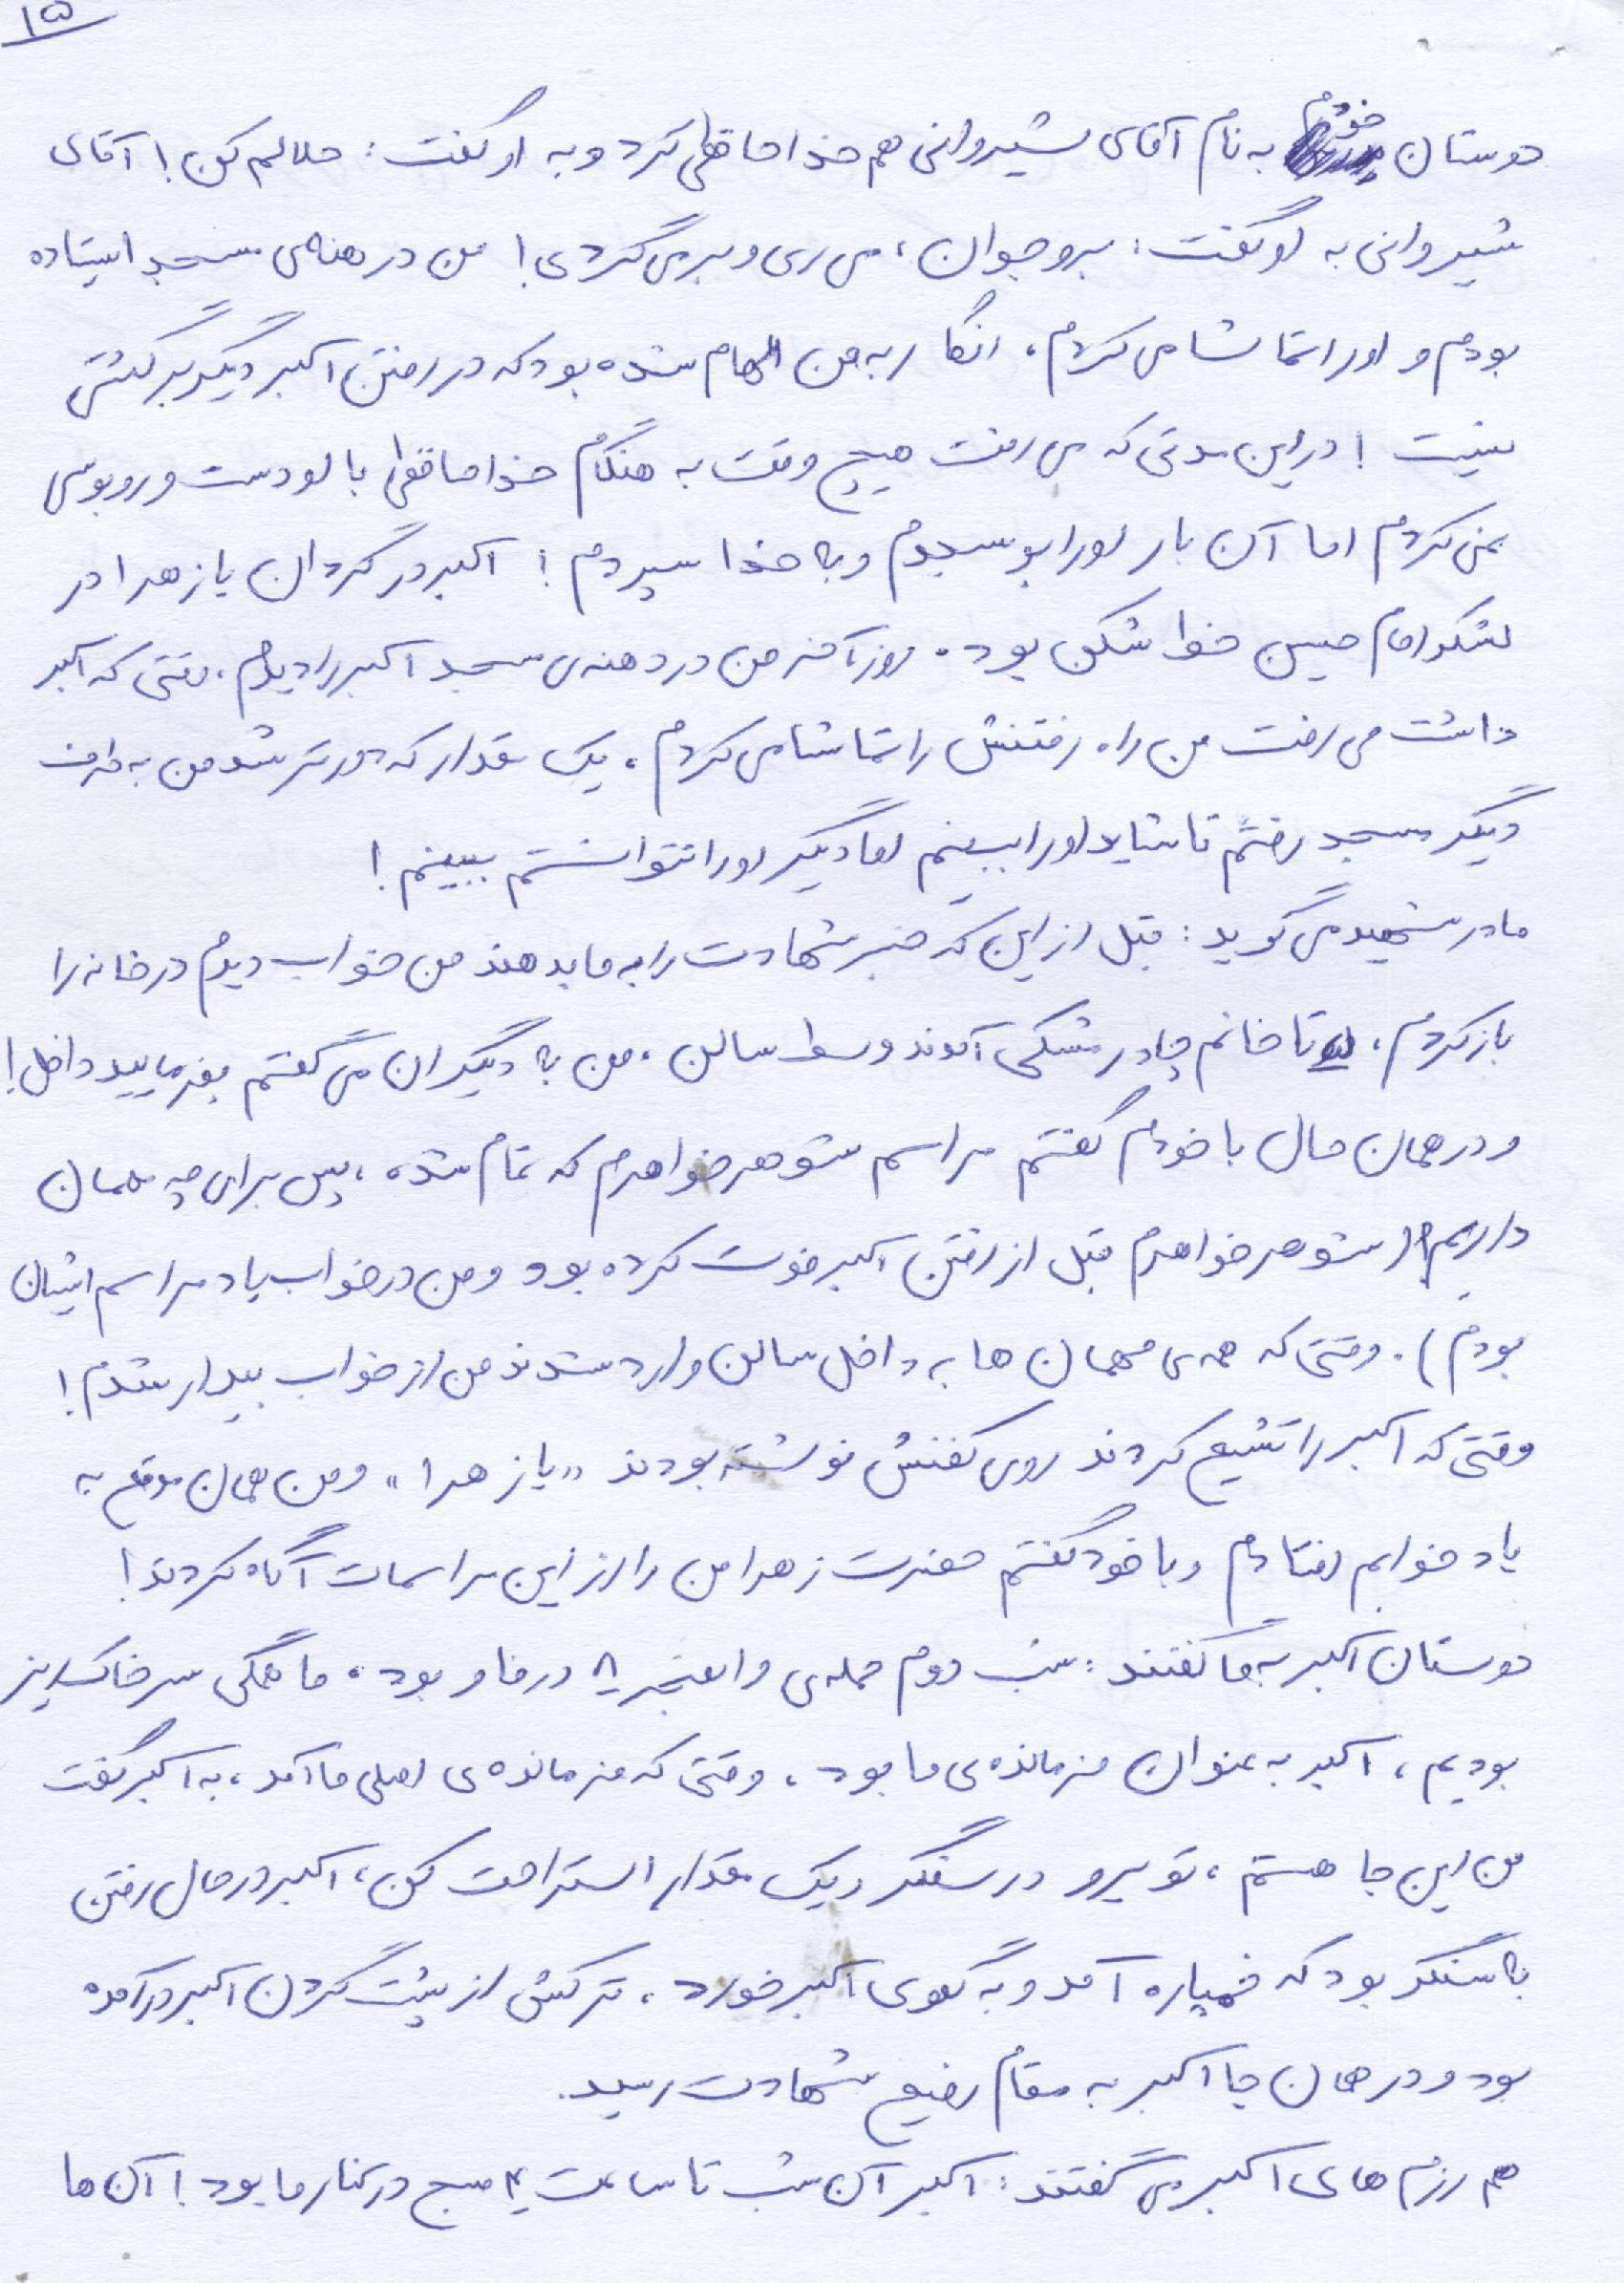 ۱۵
دوستان خودم به نام آقای شیروانی هم خداحافظی کرد و به او گفت: حلالم کن! آقای
شیروانی به او گفت: برو جوان، می ری و برمی گردی! من در دهنه ی مسجد ایستاده
بودم و او را تماشا می کردم، انگار به من الهام شده بود که در رفتن اکبر دیگر برگشتی
نیست! در این مدتی که می رفت هیچ وقت به هنگام خداحافظی با او دست و روبوسی
نمی کردم اما آن بار او را بوسیدم و به خدا سپردم! اکبر در گردان یا زهرا در
لشکر امام حسین خط شکن بود. روز آخر من در دهنه ی مسجد اکبر را دیدم، وقتی که اکبر
داشت می رفت من راه رفتنش را تماشا می کردم، یک مقدار که دورتر شد من به طرف
دیگر مسجد رفتم تا شاید او را ببینم اما دیگر او را نتوانستم ببینم!
مادر شهید می گوید: قبل از این که خبر شهادت را به ما بدهند من خواب دیدم در خانه را
باز کردم، تا خانم چادر مشکی آمدند وسط سالن، من به دیگران می گفتم بفرمایید داخل!
و در همان حال با خودم گفتم مراسم شوهر خواهرم که تمام شده، پس برای چه مهمان
داریم؟! (شوهر خواهرم قبل از رفتن اکبر فوت کرده بود و من در خواب یاد مراسم ایشان
بودم). وقتی که همه ی مهمان ها به داخل سالن وارد شدند من از خواب بیدار شدم!
وقتی که اکبر را تشییع کردند روی کفنش نوشته بودند «یا زهرا» و من همان موقع به
یاد خوابم افتادم و با خود گفتم حضرت زهرا من را از این مراسمات آگاه کردند!
دوستان اکبر به ما گفتند: شب دوم حمله ی والفجر ۸ در فاو بود. ما همگی سر خاکریز
بودیم، اکبر به عنوان فرمانده ی ما بود، وقتی که فرمانده ی اصلی ما آمد، به اکبر گفت
من این جا هستم، تو برو در سنگر و یک مقدار استراحت کن، اکبر در حال رفتن
به سنگر بود که خمپاره آمد و به گلوی اکبر خورد، ترکش از پشت گردن اکبر درآمده
بود و در همان جا اکبر به مقام رفیع شهادت رسید.
هم رزم های اکبر می گفتند: اکبر آن شب تا ساعت ۴ صبح در کنار ما بود! آن ها